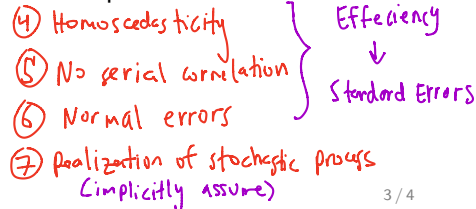 ④ Homoscedasticity
⑤ No serial correlation
⑥ Normal errors
Effeciency
↓
Standard Errors
⑦ Realization of stochastic process
(implicitly assume)
3 / 4